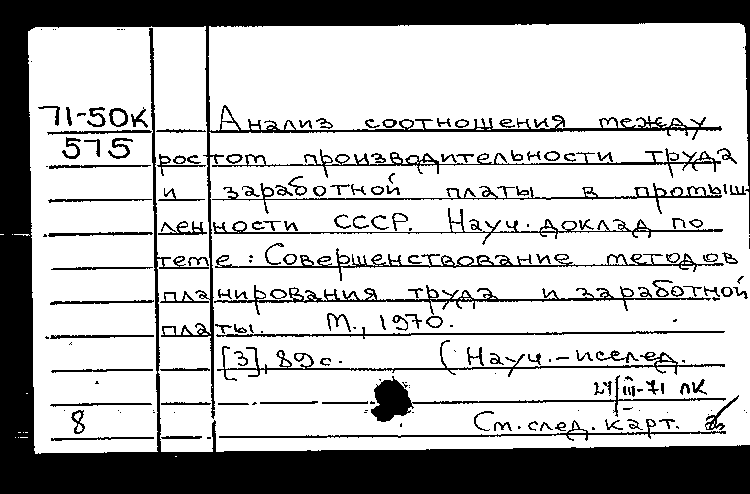 71-50К Анализ соотношения между
575 ростом производительности труда
и заработной платы в промыш-
ленности СССР. Науч. доклад по
теме: Совершенствование методов
планирования труда и заработной
платы. М., 1970.
[3], 89 с. (Науч.-исслед.
27/III-71 ЛК
8 См. след. карт.